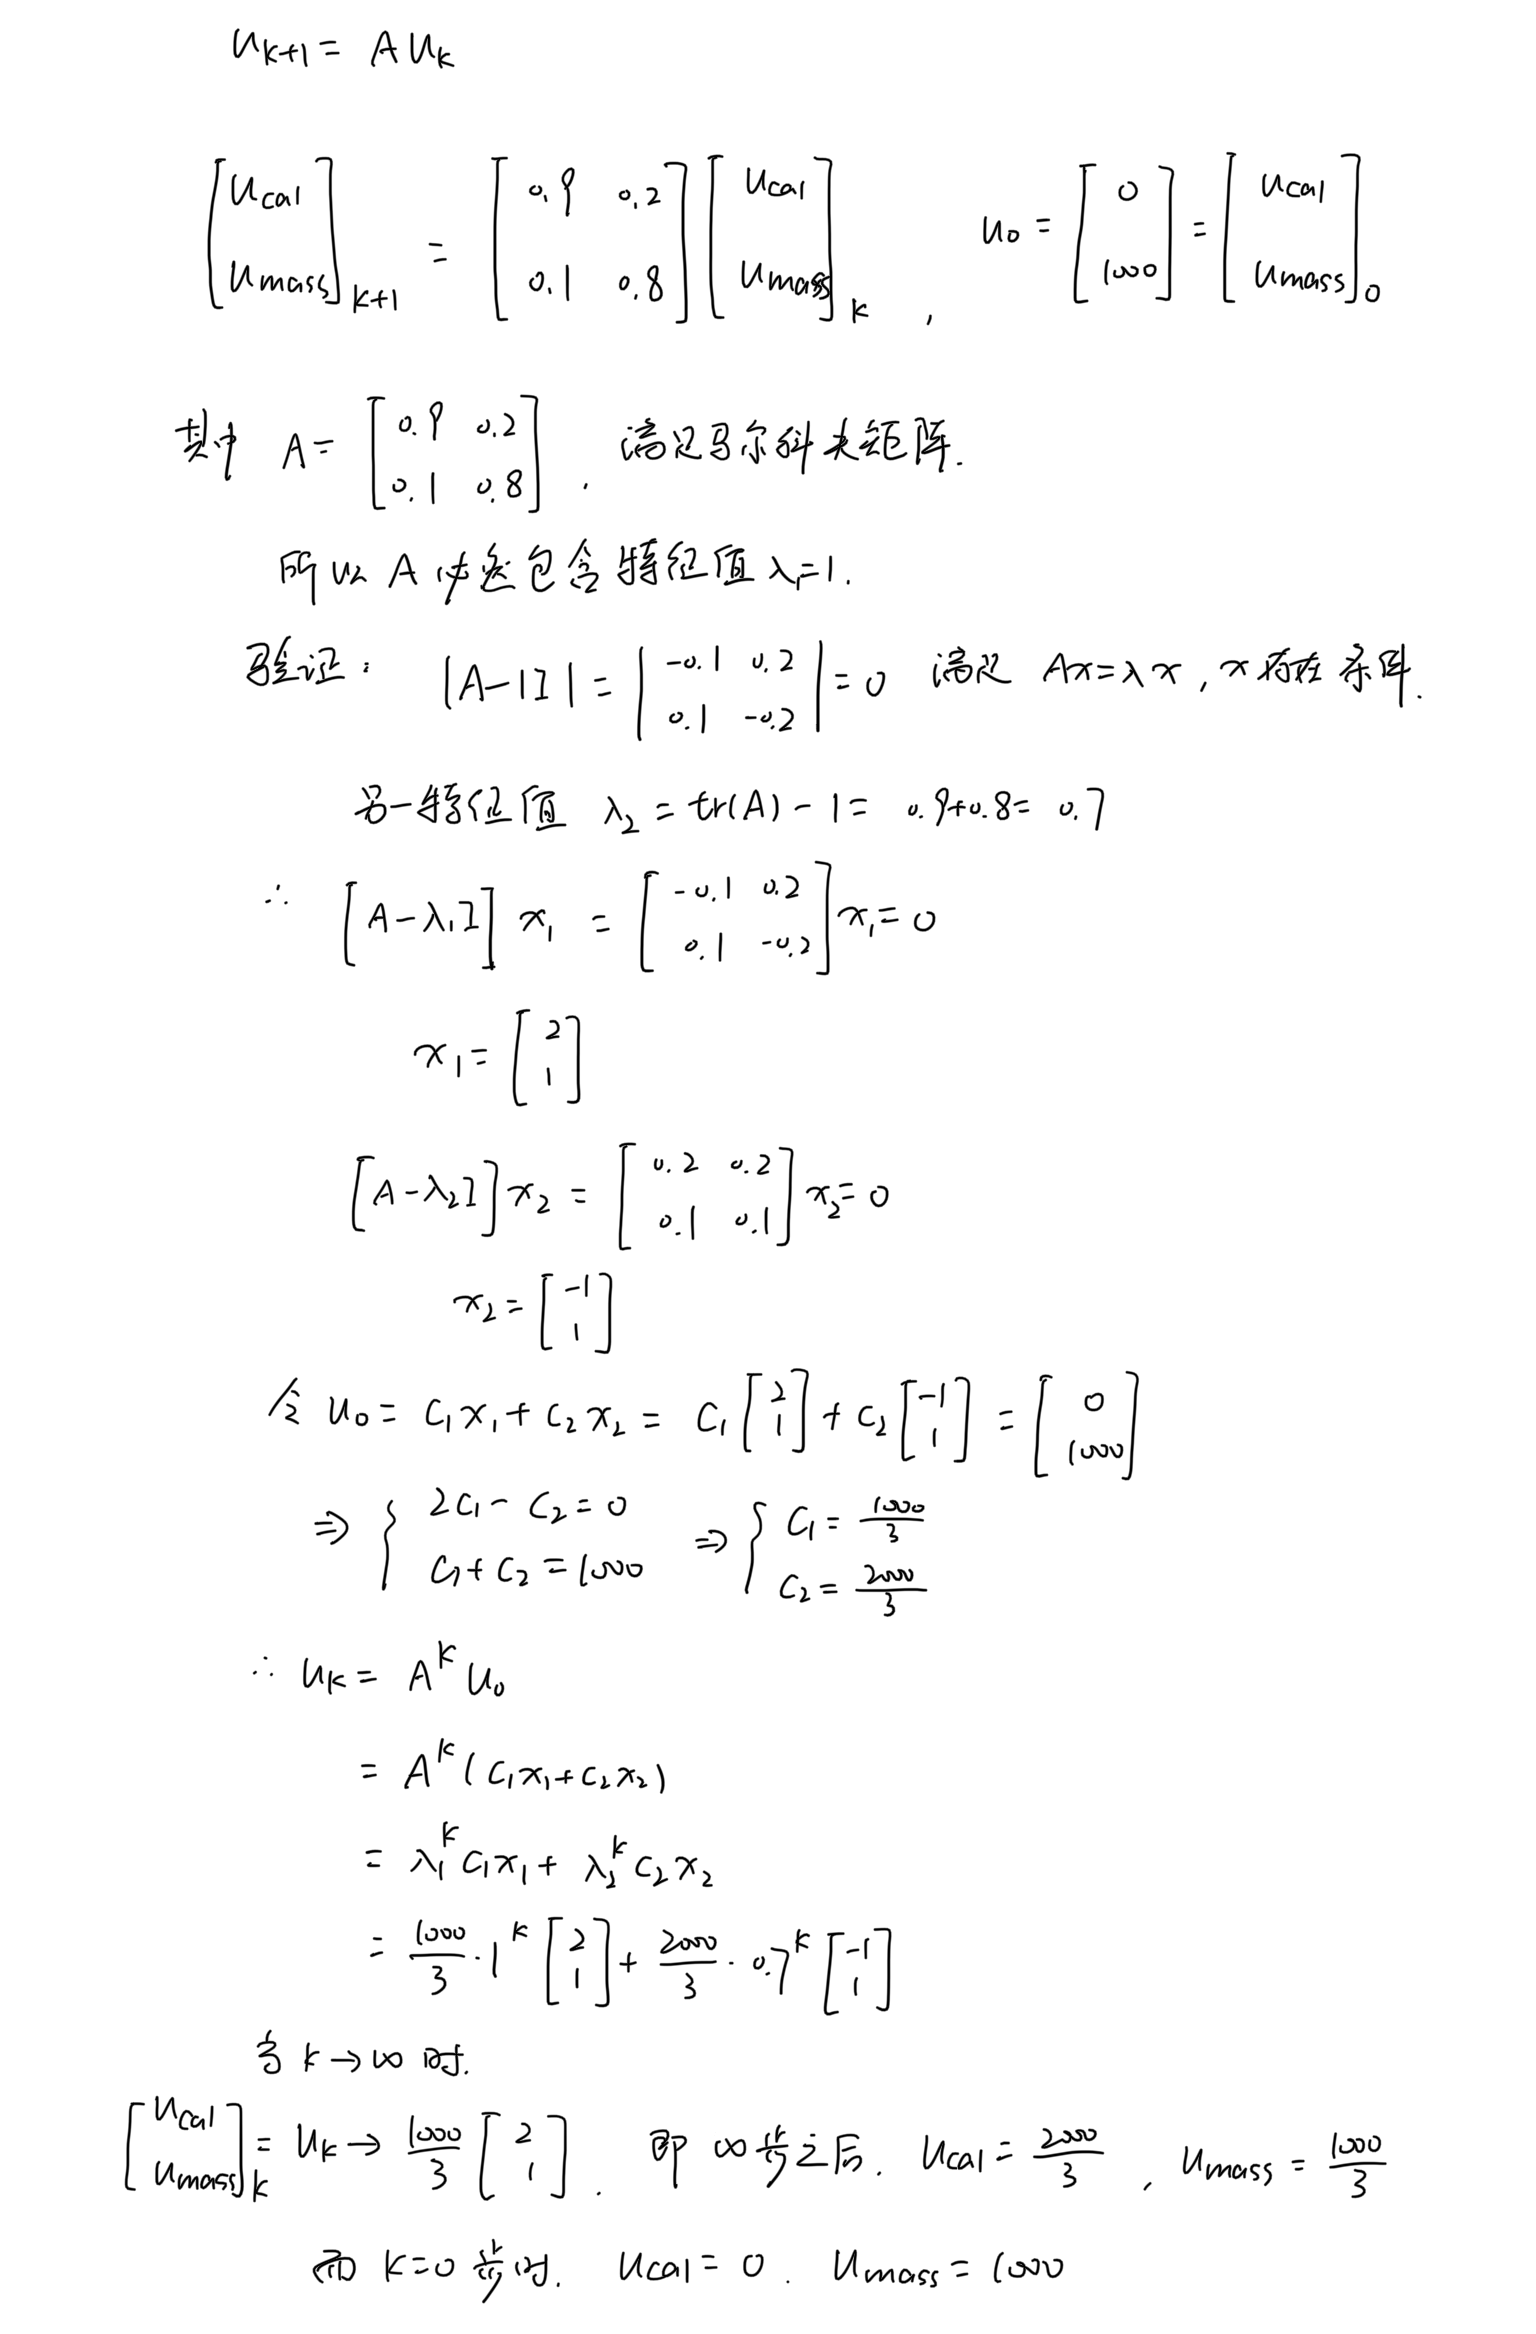 u_{k+1} = A u_k
[u_{cal}; u_{mass}]_{k+1} = [0.9 0.2; 0.1 0.8] [u_{cal}; u_{mass}]_k , u_0 = [0; 1000] = [u_{cal}; u_{mass}]_0
其中 A = [0.9 0.2; 0.1 0.8] . 满足马尔科夫矩阵.
所以 A 必定包含特征值 λ_1=1.
验证: |A-1I| = |-0.1 0.2; 0.1 -0.2| = 0 满足 Ax=λx, x存在零阵.
另一特征值 λ_2 = tr(A) - 1 = 0.9+0.8 = 0.7
∴ [A-λ_1I] x_1 = [-0.1 0.2; 0.1 -0.2] x_1 = 0
x_1 = [2; 1]
[A-λ_2I] x_2 = [0.2 0.2; 0.1 0.1] x_2 = 0
x_2 = [-1; 1]
令 u_0 = c_1x_1 + c_2x_2 = c_1 [2; 1] + c_2 [-1; 1] = [0; 1000]
⇒ { 2c_1 - c_2 = 0; c_1 + c_2 = 1000 ⇒ { c_1 = 1000/3; c_2 = 2000/3
∴ u_k = A^k u_0
= A^k (c_1x_1 + c_2x_2)
= λ_1^k c_1x_1 + λ_2^k c_2x_2
= 1000/3 · 1^k [2; 1] + 2000/3 · 0.7^k [-1; 1]
当 k→∞ 时.
[u_{cal}; u_{mass}]_k = u_k → 1000/3 [2; 1] . 即 ∞步之后. u_{cal} = 2000/3 , u_{mass} = 1000/3
而 k=0 步时. u_{cal} = 0 . u_{mass} = 1000